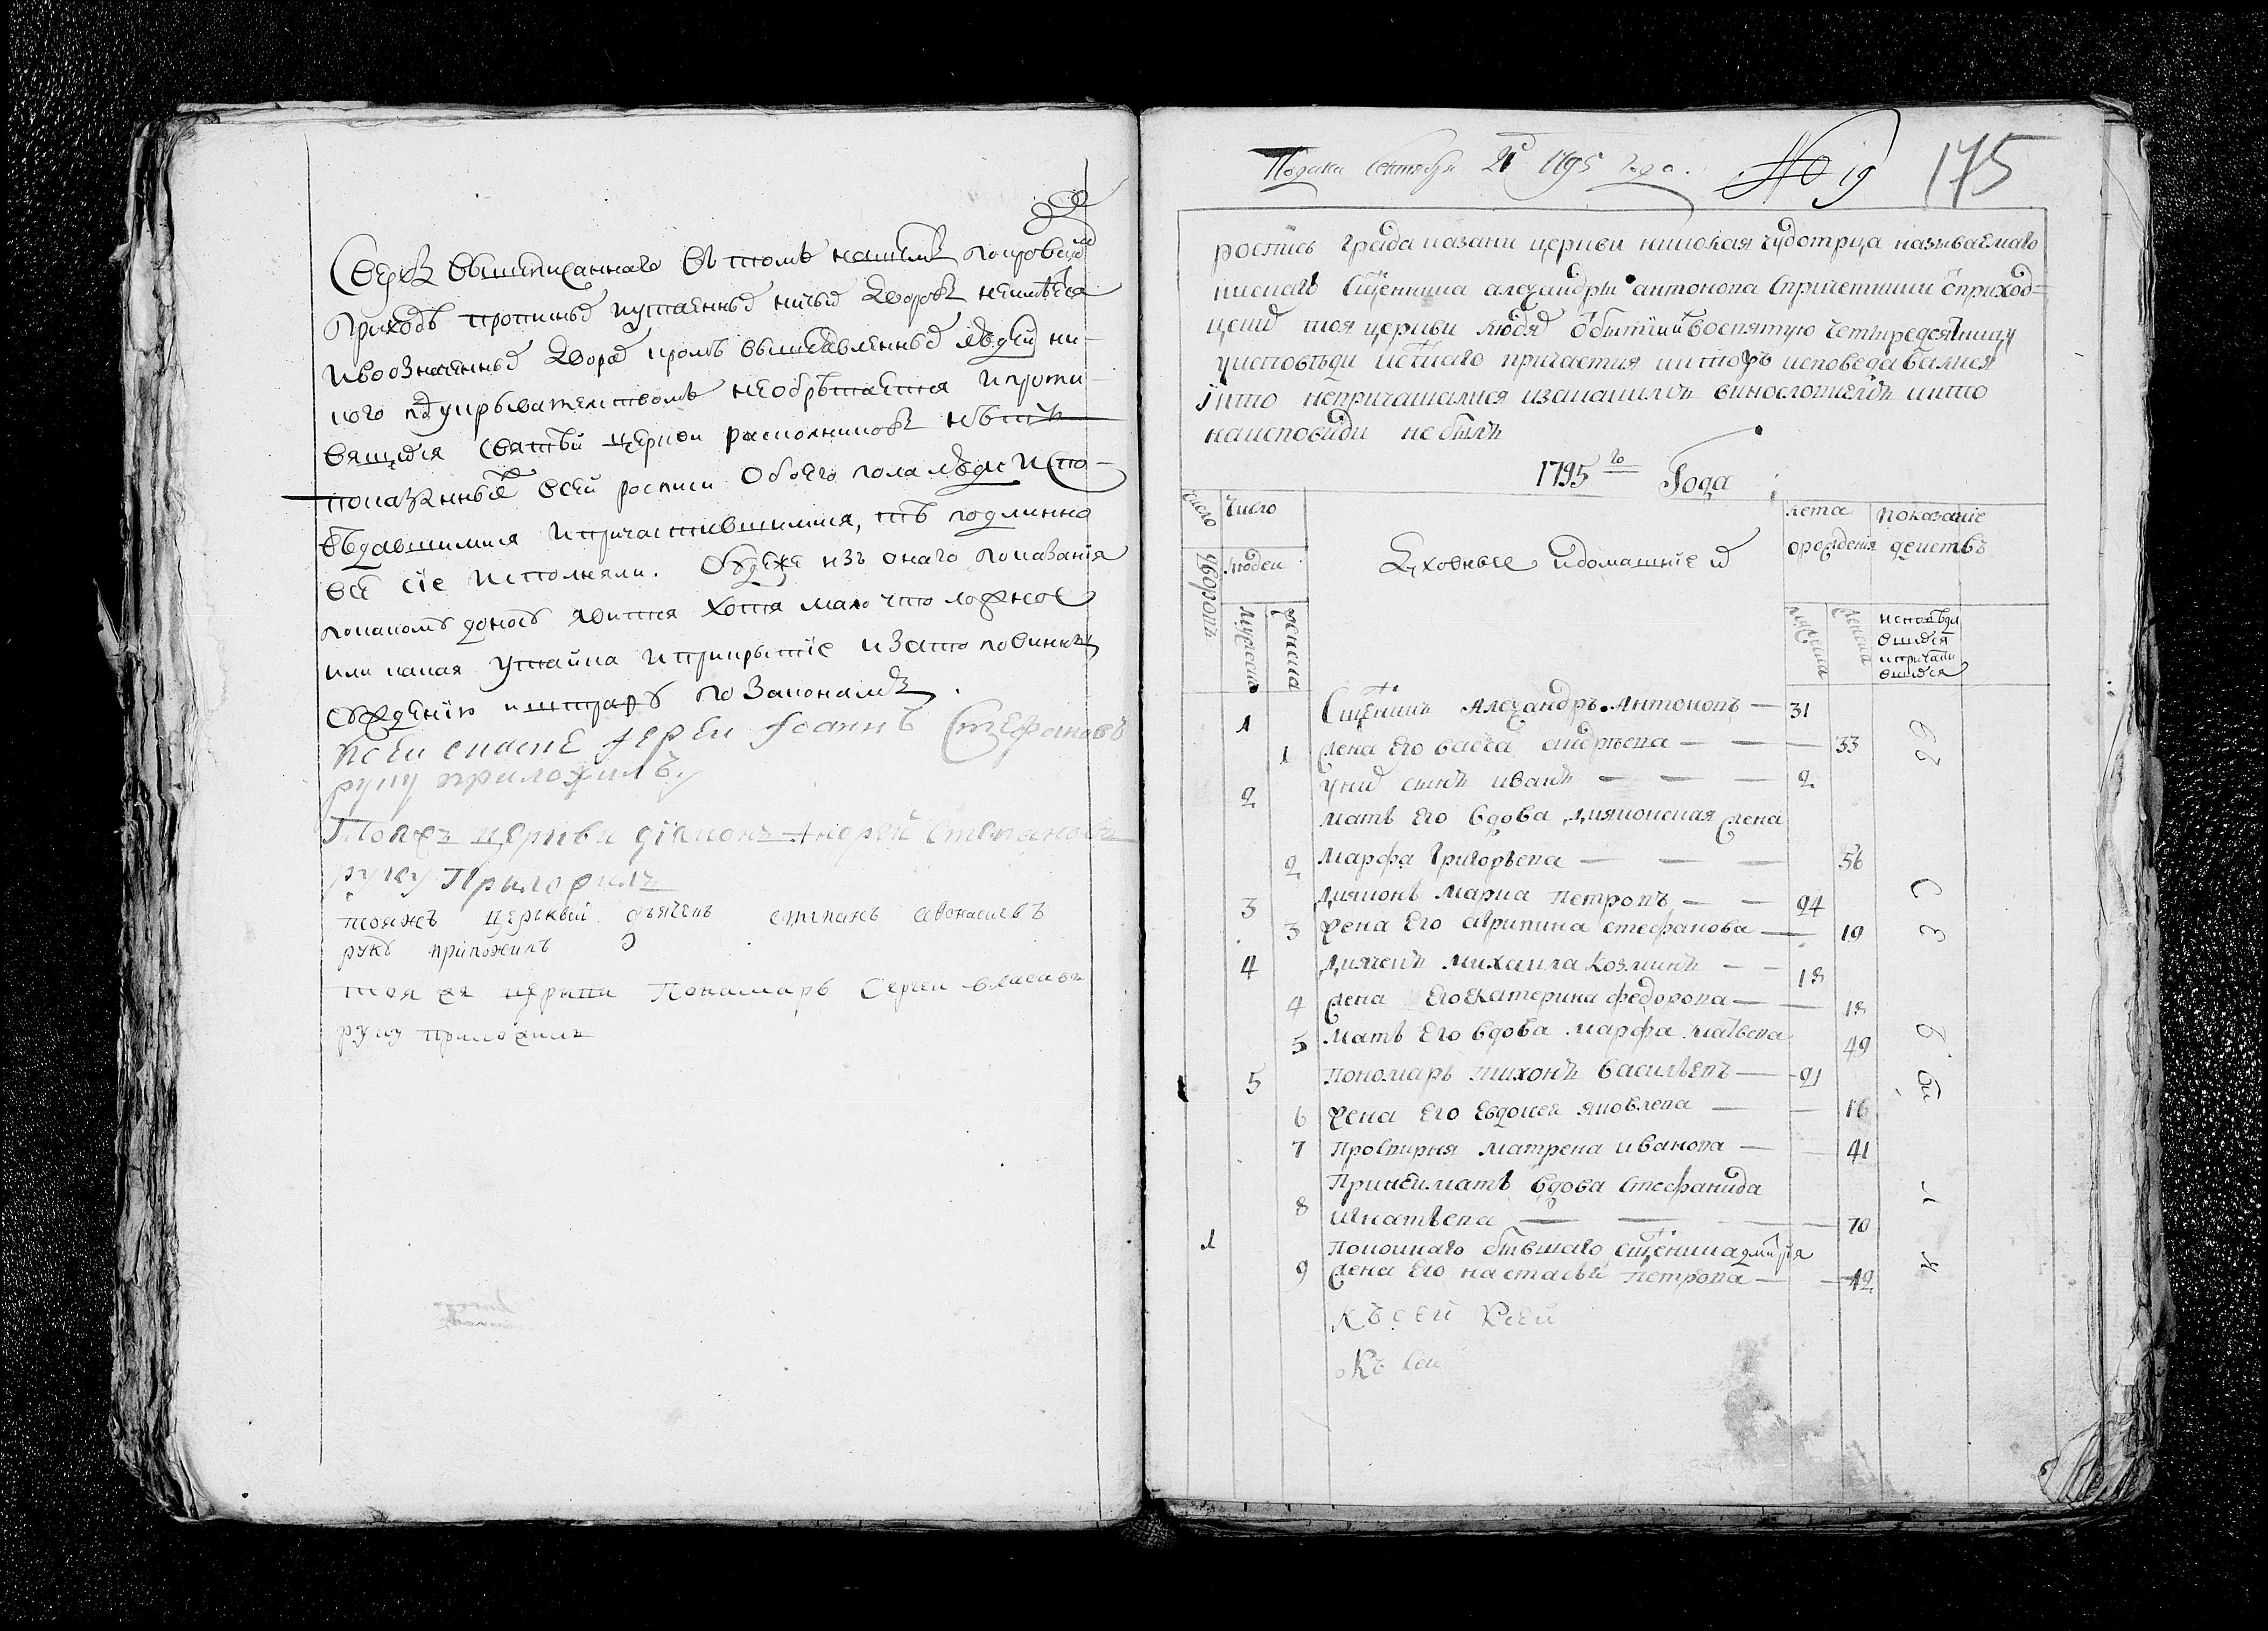 Сверхъ вышеписаннаго въ томъ нашемъ покровскомъ
приходѣ протчихъ пустаенныхъ ничьихъ дворовъ неимѣется
ивоозначенныхъ дворахъ кромѣ выявленныхъ людей ни-
кого подукрывателствомъ необрѣтается ипроти-
вящихся святѣй церкви раскольниковъ нѣтъ
показанныеже всей росписи обоего пола люди испо-
вѣдавшимися ипричастившимися, тѣ подлинно
всѣ сіе исполняли. Ождеже изъ онаго показанія
покакомъ доносѣ явится хотя мало что ложное
или какая утайка иприкрытіе изато повинны
сужденію иштрафу по законамъ.
Ксеи сказке іереи Іоаннъ Стефановъ
руку приложилъ.
Тояжъ церкви діаконъ Андрей Степановъ
руку приложилъ
тояжъ церкви дьячекъ степанъ авонасиевъ
руку приложилъ
тоя же церкви Пономарь Сергеи власовъ
руку приложилъ
Подана Сентября 21 1795 года. № 19 175
роспись града казани церкви николая чудотрца называемаго
нискаго Сщенника александры антонова спричетники сприход-
цкихъ тоя церкви людяхъ обытіи воспятую четыредесятницу
уисповѣди исвтаго причастия икторъ исповедавался
ікто непричащалися изакакимъ винословіемъ икто
наисповѣди не былъ
1795го Года
число дворовъ
Число людеи
мужска
женска
Духовные идомашніе их
лета орождения
мужеска
женска
показаніе деиствъ
исповѣдавшихся ипричастившихся
1 Сщенникъ Александръ Антоновъ — 31
1 жена его васса андреева — 33
2 уних сынъ иванъ — 2
мать его вдова дияконская жена
2 марфа григорьева — 56
3 дияконъ марка петровъ — 24
3 жена его агрипина стефанова — 19
4 диячекъ михаила козминъ — 18
4 жена его екатерина федорова — 18
5 мать его вдова марфа матвеева 49
5 пономарь тихонъ васильевъ — 21
6 жена его евдокея яковлева — 16
7 просвирня матрена иванова — 41
8 принеи мать вдова стефанида
игнатьева — 70
1 покоинаго бывшаго сщенника дмитрия
9 жена его настасья петрова — 42
къ сеи
Къ сеи